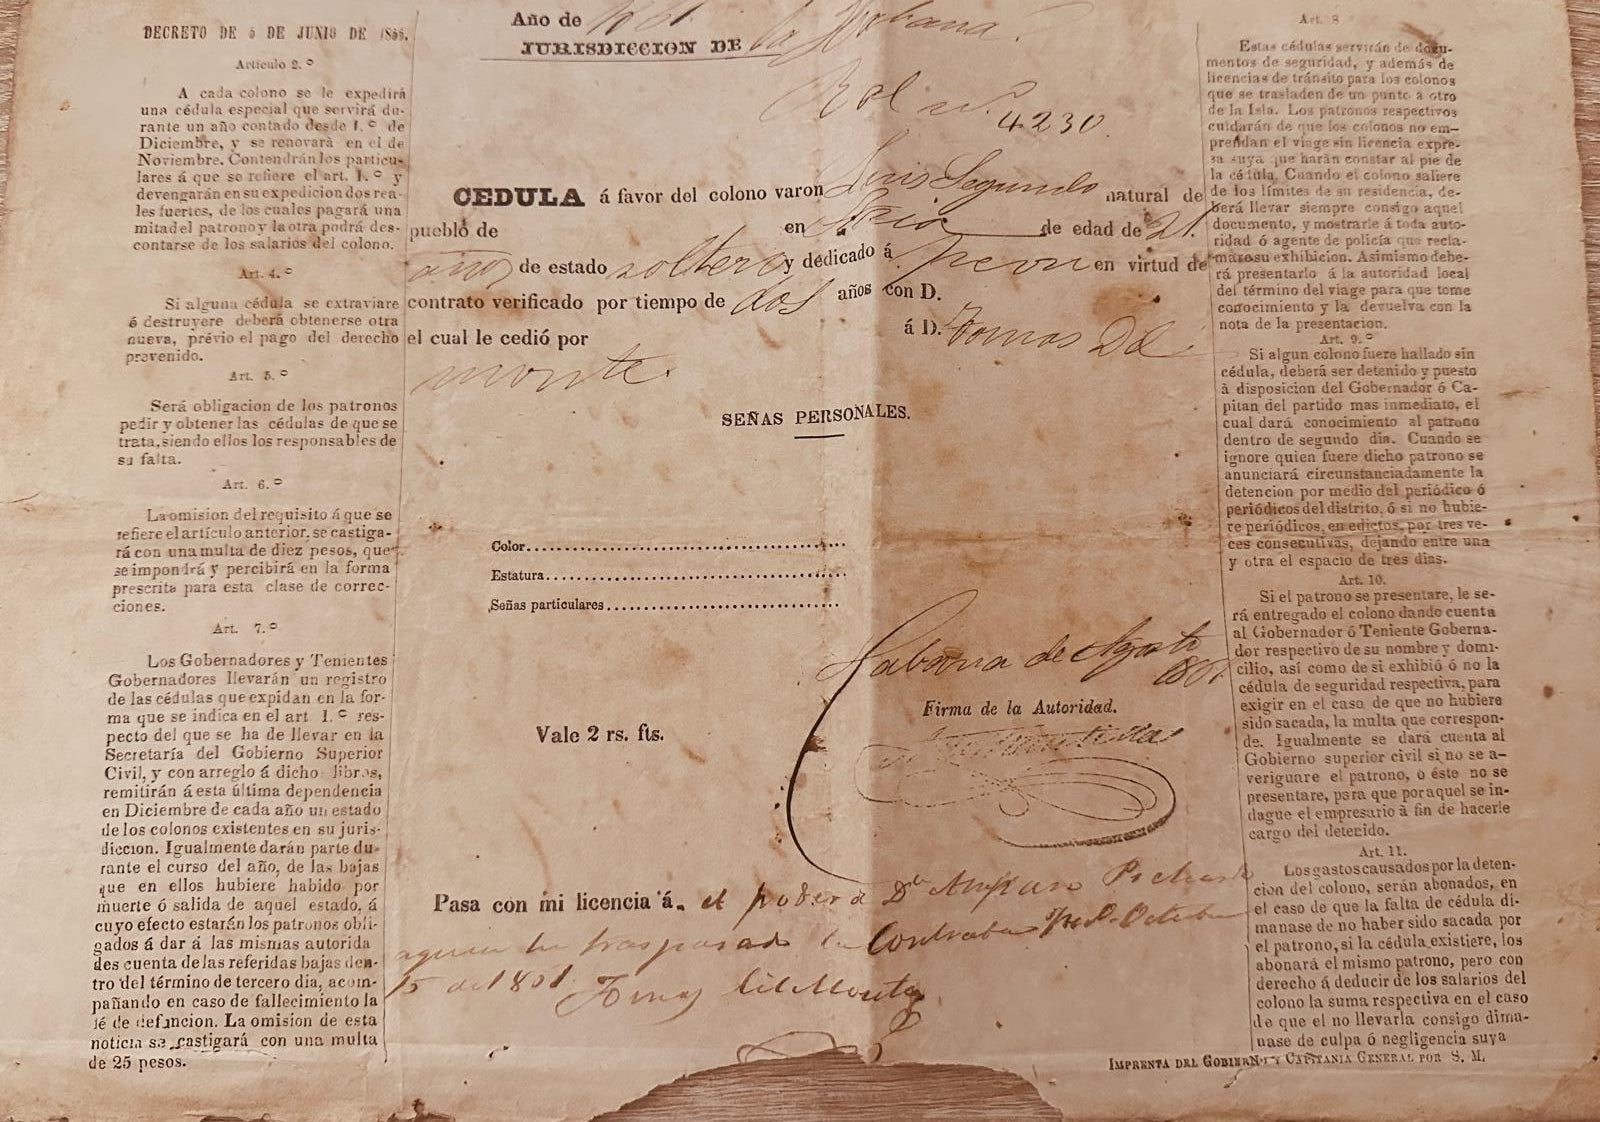 DECRETO DE 5 DE JUNIO DE 1855.
Artículo 2.º
A cada colono se le expedirá
una cédula especial que servirá du-
rante un año contado desde 1.º de
Diciembre, y se renovará en el de
Noviembre. Contendrán los particu-
lares á que se refiere el art. 1.º y
devengarán en su expedicion dos rea-
les fuertes, de los cuales pagará una
mitad el patrono y la otra podrá des-
contarse de los salarios del colono.
Art. 4.º
Si alguna cédula se extraviare
ó destruyere deberá obtenerse otra
nueva, prévio el pago del derecho
prevenido.
Art. 5.º
Será obligacion de los patronos
pedir y obtener las cédulas de que se
trata, siendo ellos los responsables de
su falta.
Art. 6.º
La omision del requisito á que se
refiere el artículo anterior, se castiga-
rá con una multa de diez pesos, que
se impondrá y percibirá en la forma
prescrita para esta clase de correc-
ciones.
Art. 7.º
Los Gobernadores y Tenientes
Gobernadores llevarán un registro
de las cédulas que expidan en la for-
ma que se indica en el art 1.º res-
pecto del que se ha de llevar en la
Secretaría del Gobierno Superior
Civil, y con arreglo á dicho libros,
remitirán á esta última dependencia
en Diciembre de cada año un estado
de los colonos existentes en su juris-
diccion. Igualmente darán parte du-
rante el curso del año, de las bajas
que en ellos hubiere habido por
muerte ó salida de aquel estado, á
cuyo efecto estarán los patronos obli-
gados á dar á las mismas autorida
des cuenta de las referidas bajas den-
tro del término de tercero dia, acom-
pañando en caso de fallecimiento la
fé de defuncion. La omision de esta
noticia se castigará con una multa
de 25 pesos.
Año de
JURISDICCION DE la Habana.
Rol nº. 4230.
CEDULA á favor del colono varon Luis Segundo natural de
pueblo de en de edad de 21.
años de estado soltero y dedicado á peon en virtud de
contrato verificado por tiempo de dos años con D.
el cual le cedió por á D. Tomas Del
monte.
SEÑAS PERSONALES.
Color
Estatura
Señas particulares
Habana de Agosto
1861.
Firma de la Autoridad.
Vale 2 rs. fts.
Pasa con mi licencia á el poder d Dn
traspasado Contrata Octubre
15 de 1861 Tomas del Monte
Art. 8
Estas cédulas servirán de docu-
mentos de seguridad, y además de
licencias de tránsito para los colonos
que se trasladen de un punto á otro
de la Isla. Los patronos respectivos
cuidarán de que los colonos no em-
prendan el viage sin licencia expre-
sa suya que harán constar al pie de
la cédula. Cuando el colono saliere
de los límites de su residencia, de-
berá llevar siempre consigo aquel
documento, y mostrarle á toda auto-
ridad ó agente de policía que recla-
mare su exhibicion. Asimismo debe-
rá presentarlo á la autoridad local
del término del viage para que tome
conocimiento y la devuelva con la
nota de la presentacion.
Art. 9.º
Si algun colono fuere hallado sin
cédula, deberá ser detenido y puesto
à disposicion del Gobernador ó Ca-
pitan del partido mas inmediato, el
cual dará conocimiento al patrono
dentro de segundo dia. Cuando se
ignore quien fuere dicho patrono se
anunciará circunstanciadamente la
detencion por medio del periódico ó
periódicos del distrito, ó si no hubie-
re periódicos, en edictos, por tres ve-
ces consecutivas, dejando entre una
y otra el espacio de tres dias.
Art. 10.
Si el patrono se presentare, le se-
rá entregado el colono dando cuenta
al Gobernador ó Teniente Goberna-
dor respectivo de su nombre y domi-
cilio, así como de si exhibió ó no la
cédula de seguridad respectiva, para
exigir en el caso de que no hubiere
sido sacada, la multa que correspon-
de. Igualmente se dará cuenta al
Gobierno superior civil si no se a-
veriguare el patrono, o éste no se
presentare, para que por aquel se in-
dague el empresario à fin de hacerle
cargo del detenido.
Art. 11.
Los gastos causados por la deten-
cion del colono, serán abonados, en
el caso de que la falta de cédula di-
manase de no haber sido sacada por
el patrono, si la cédula existiere, los
abonará el mismo patrono, pero con
derecho á deducir de los salarios del
colono la suma respectiva en el caso
de que el no llevarla consigo dima-
nase de culpa ó negligencia suya
IMPRENTA DEL GOBIERNO Y CAPITANIA GENERAL POR S. M.